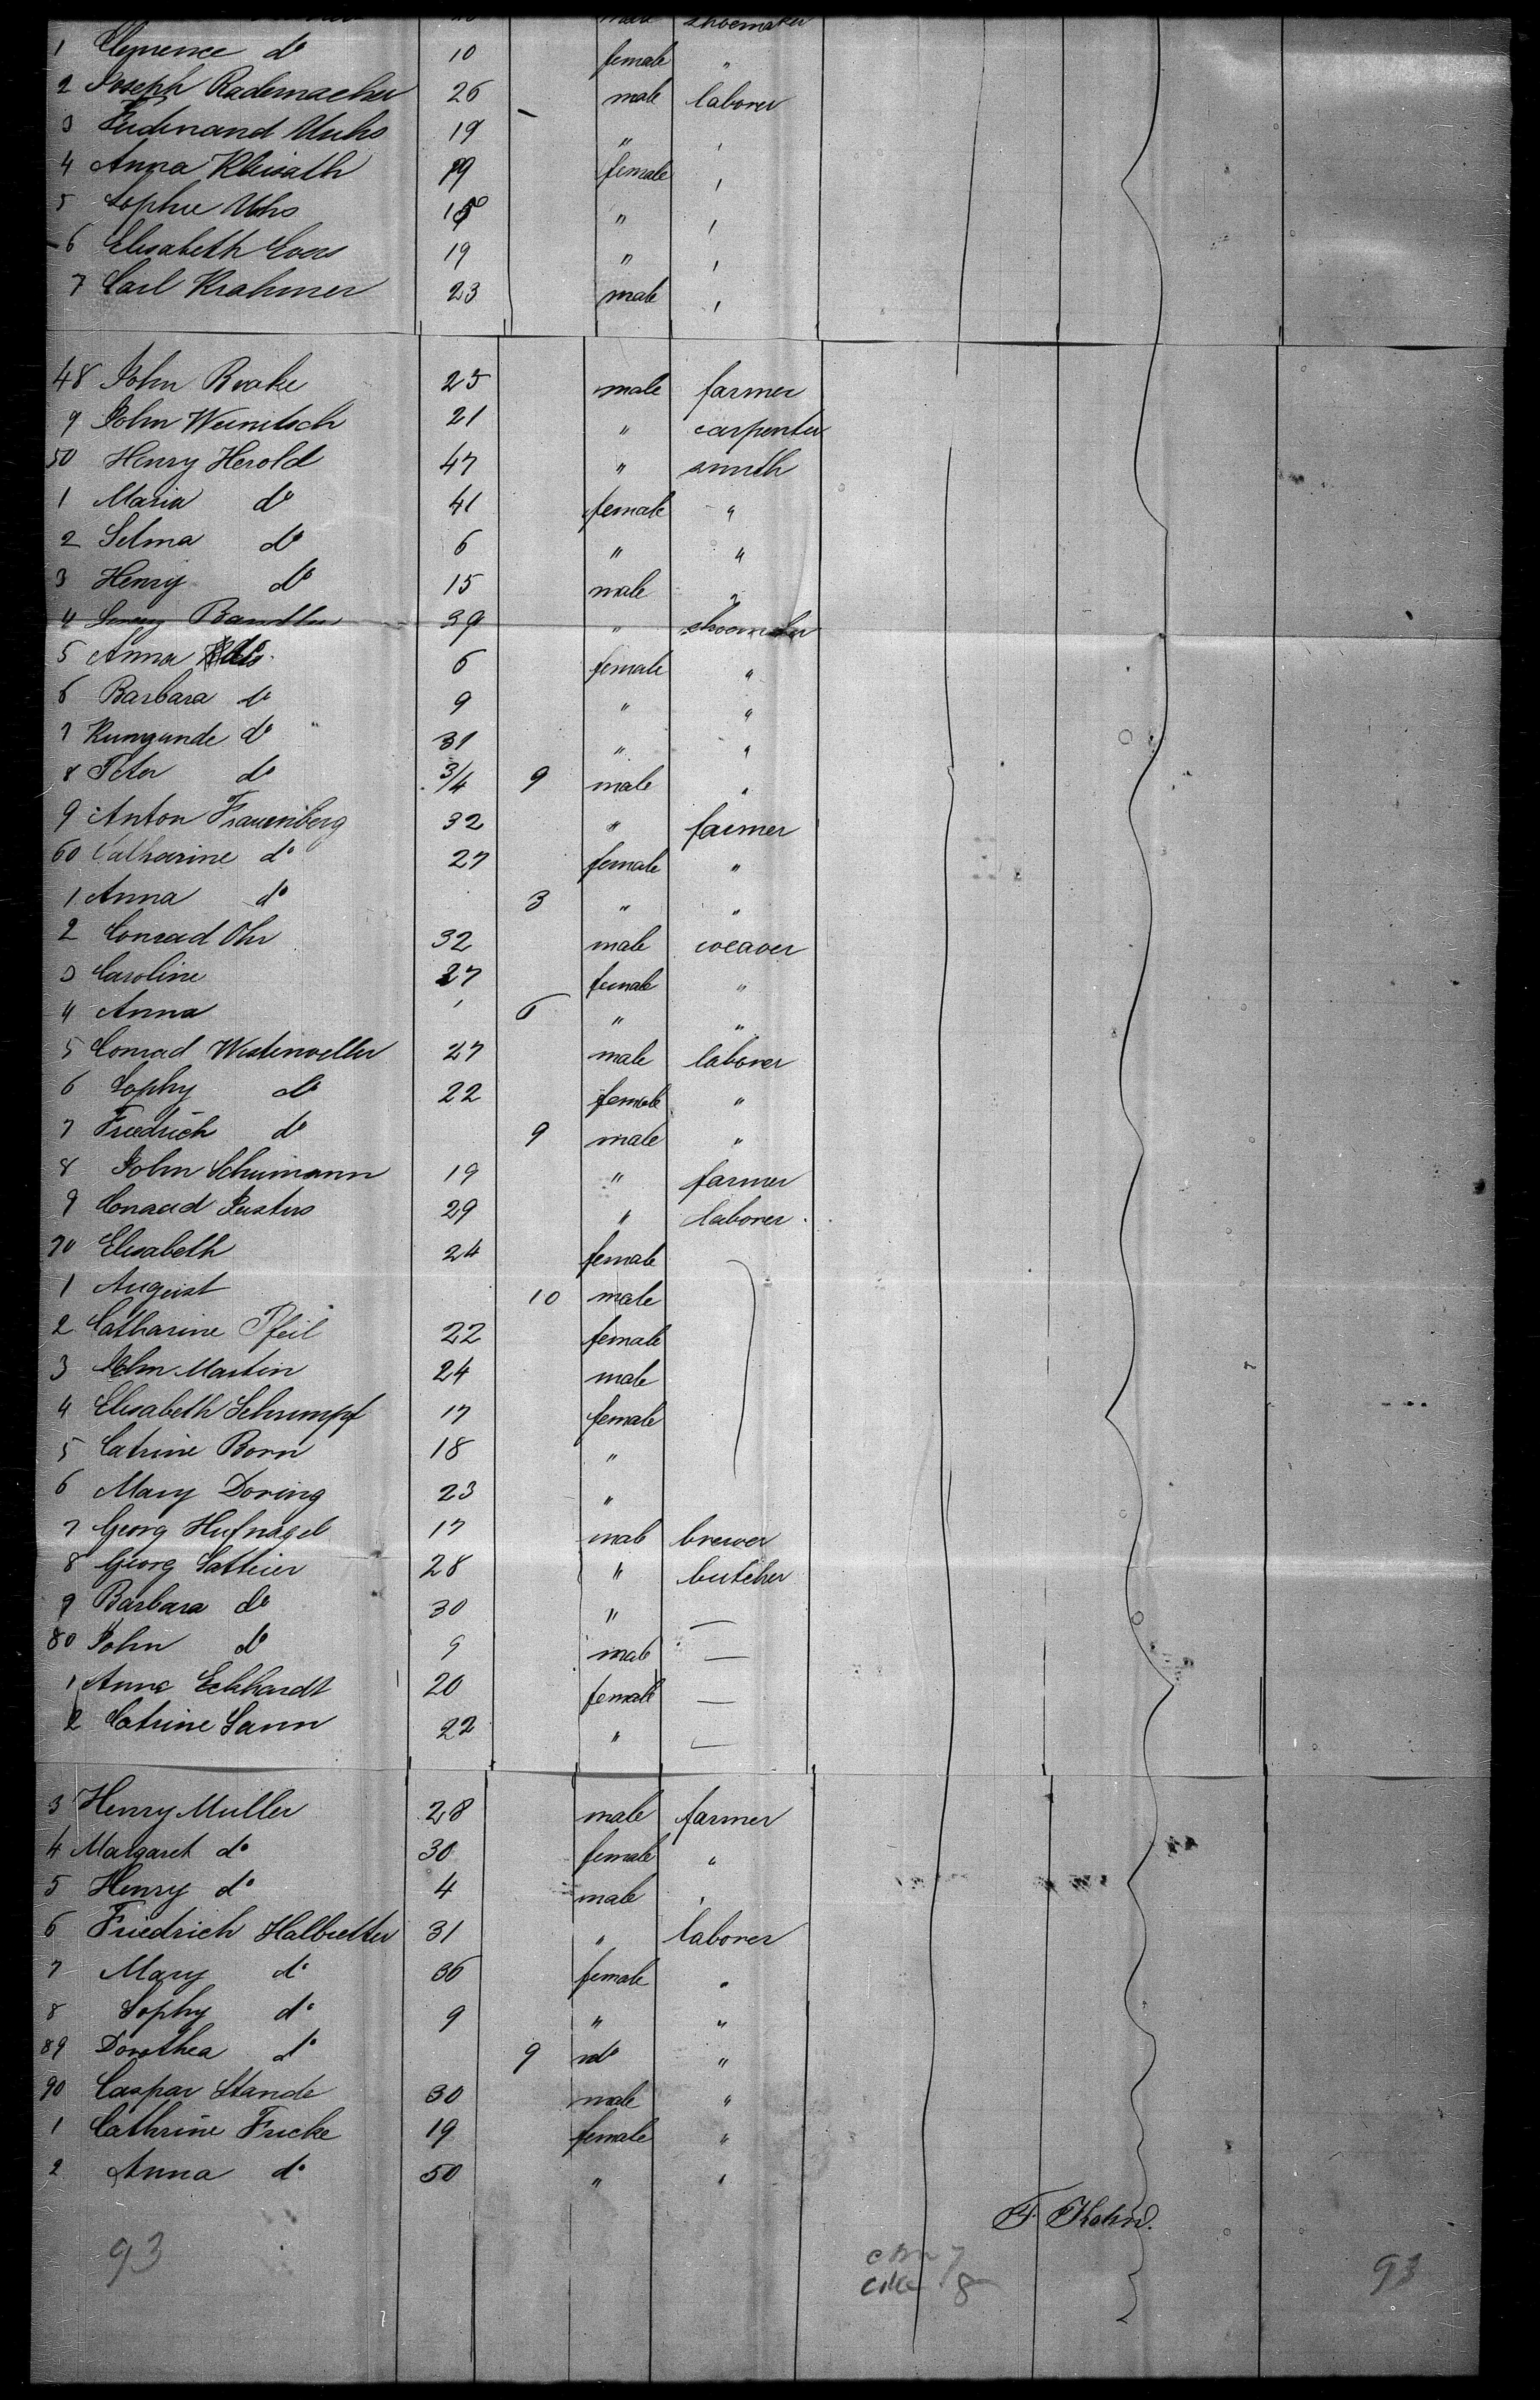 shoemaker
1 Clemence do 10 female "
2 Joseph Rademacher 26 male laborer
3 Ferdinand Muhs 19 " "
4 Anna 19 female "
5 Sophie "  "
6 Elisabeth Evers 19 " "
7 Carl Krahmer 23 male "
48 John Brake 25 male farmer
9 John Weinitsch 21 " carpenter
50 Henry Herold 47 " smith
1 Maria do 41 female "
2 Selma do 6 " "
3 Henry do 15 male "
4 39 " shoemaker
5 Anna do 6 female "
6 Barbara do 9 " "
7 Kunigunde do 31 " "
8 Peter do 3/4 9 male "
9 Anton Frauenberg 32 " farmer
60 Catharine do 27 female "
1 Anna do 3 " "
2 Conrad Ohr 32 male weaver
3 Caroline 27 female "
4 Anna 6 " "
5 Conrad Westerweller 27 male laborer
6 Sophy do 22 female "
7 Friedrich do 9 male "
8 John Schumann 19 " farmer
9 Conrad 29 " laborer
70 Elisabeth 24 female
1 August 10 male
2 Catharine Pfeil 22 female
3 John Martin 24 male
4 Elisabeth Schrumpf 17 female
5 Catrine Born 18 "
6 Mary Doring 23 "
7 Georg Hufnagel 17 male brewer
8 Georg 28 " butcher
9 Barbara do 30 " —
80 John do 9 male —
1 Anna Eckhardt 20 female —
2 Catrine Sann 22 " —
3 Henry Muller 28 male farmer
4 Margaret do 30 female "
5 Henry do 4 male "
6 Friedrich 31 " laborer
7 Mary do 36 female "
8 Sophy do 9 " "
89 Dorothea do 9 do "
90 Caspar Stande 30 male "
1 Cathrine Fricke 19 female "
2 Anna do 50 " "
93 93